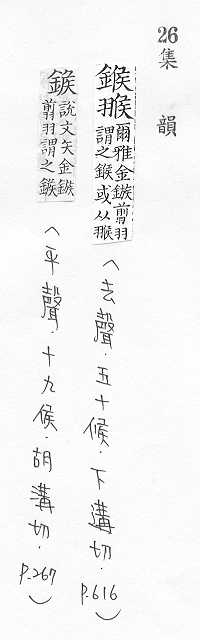 26
集韻
鍭𦑚 爾雅金鏃翦羽謂之鍭或从羽
(去聲.五十候.下遘切.P.616)
鍭 說文矢金鏃翦羽謂之鍭
(平聲.十九侯.胡溝切.P.267)